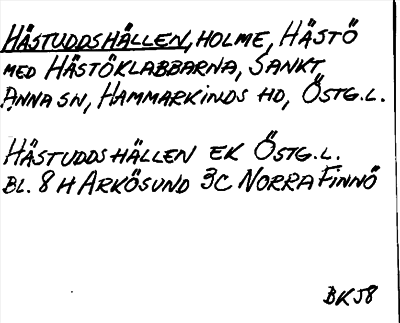 HÄSTUDDSHÄLLEN, HOLME, HÄSTÖ
MED HÄSTÖKLABBARNA, SANKT
ANNA SN, HAMMARKINDS HD, ÖSTG.L.
HÄSTUDDSHÄLLEN EK ÖSTG.L.
BL. 8 H ARKÖSUND 3C NORRA FINNÖ
BK58